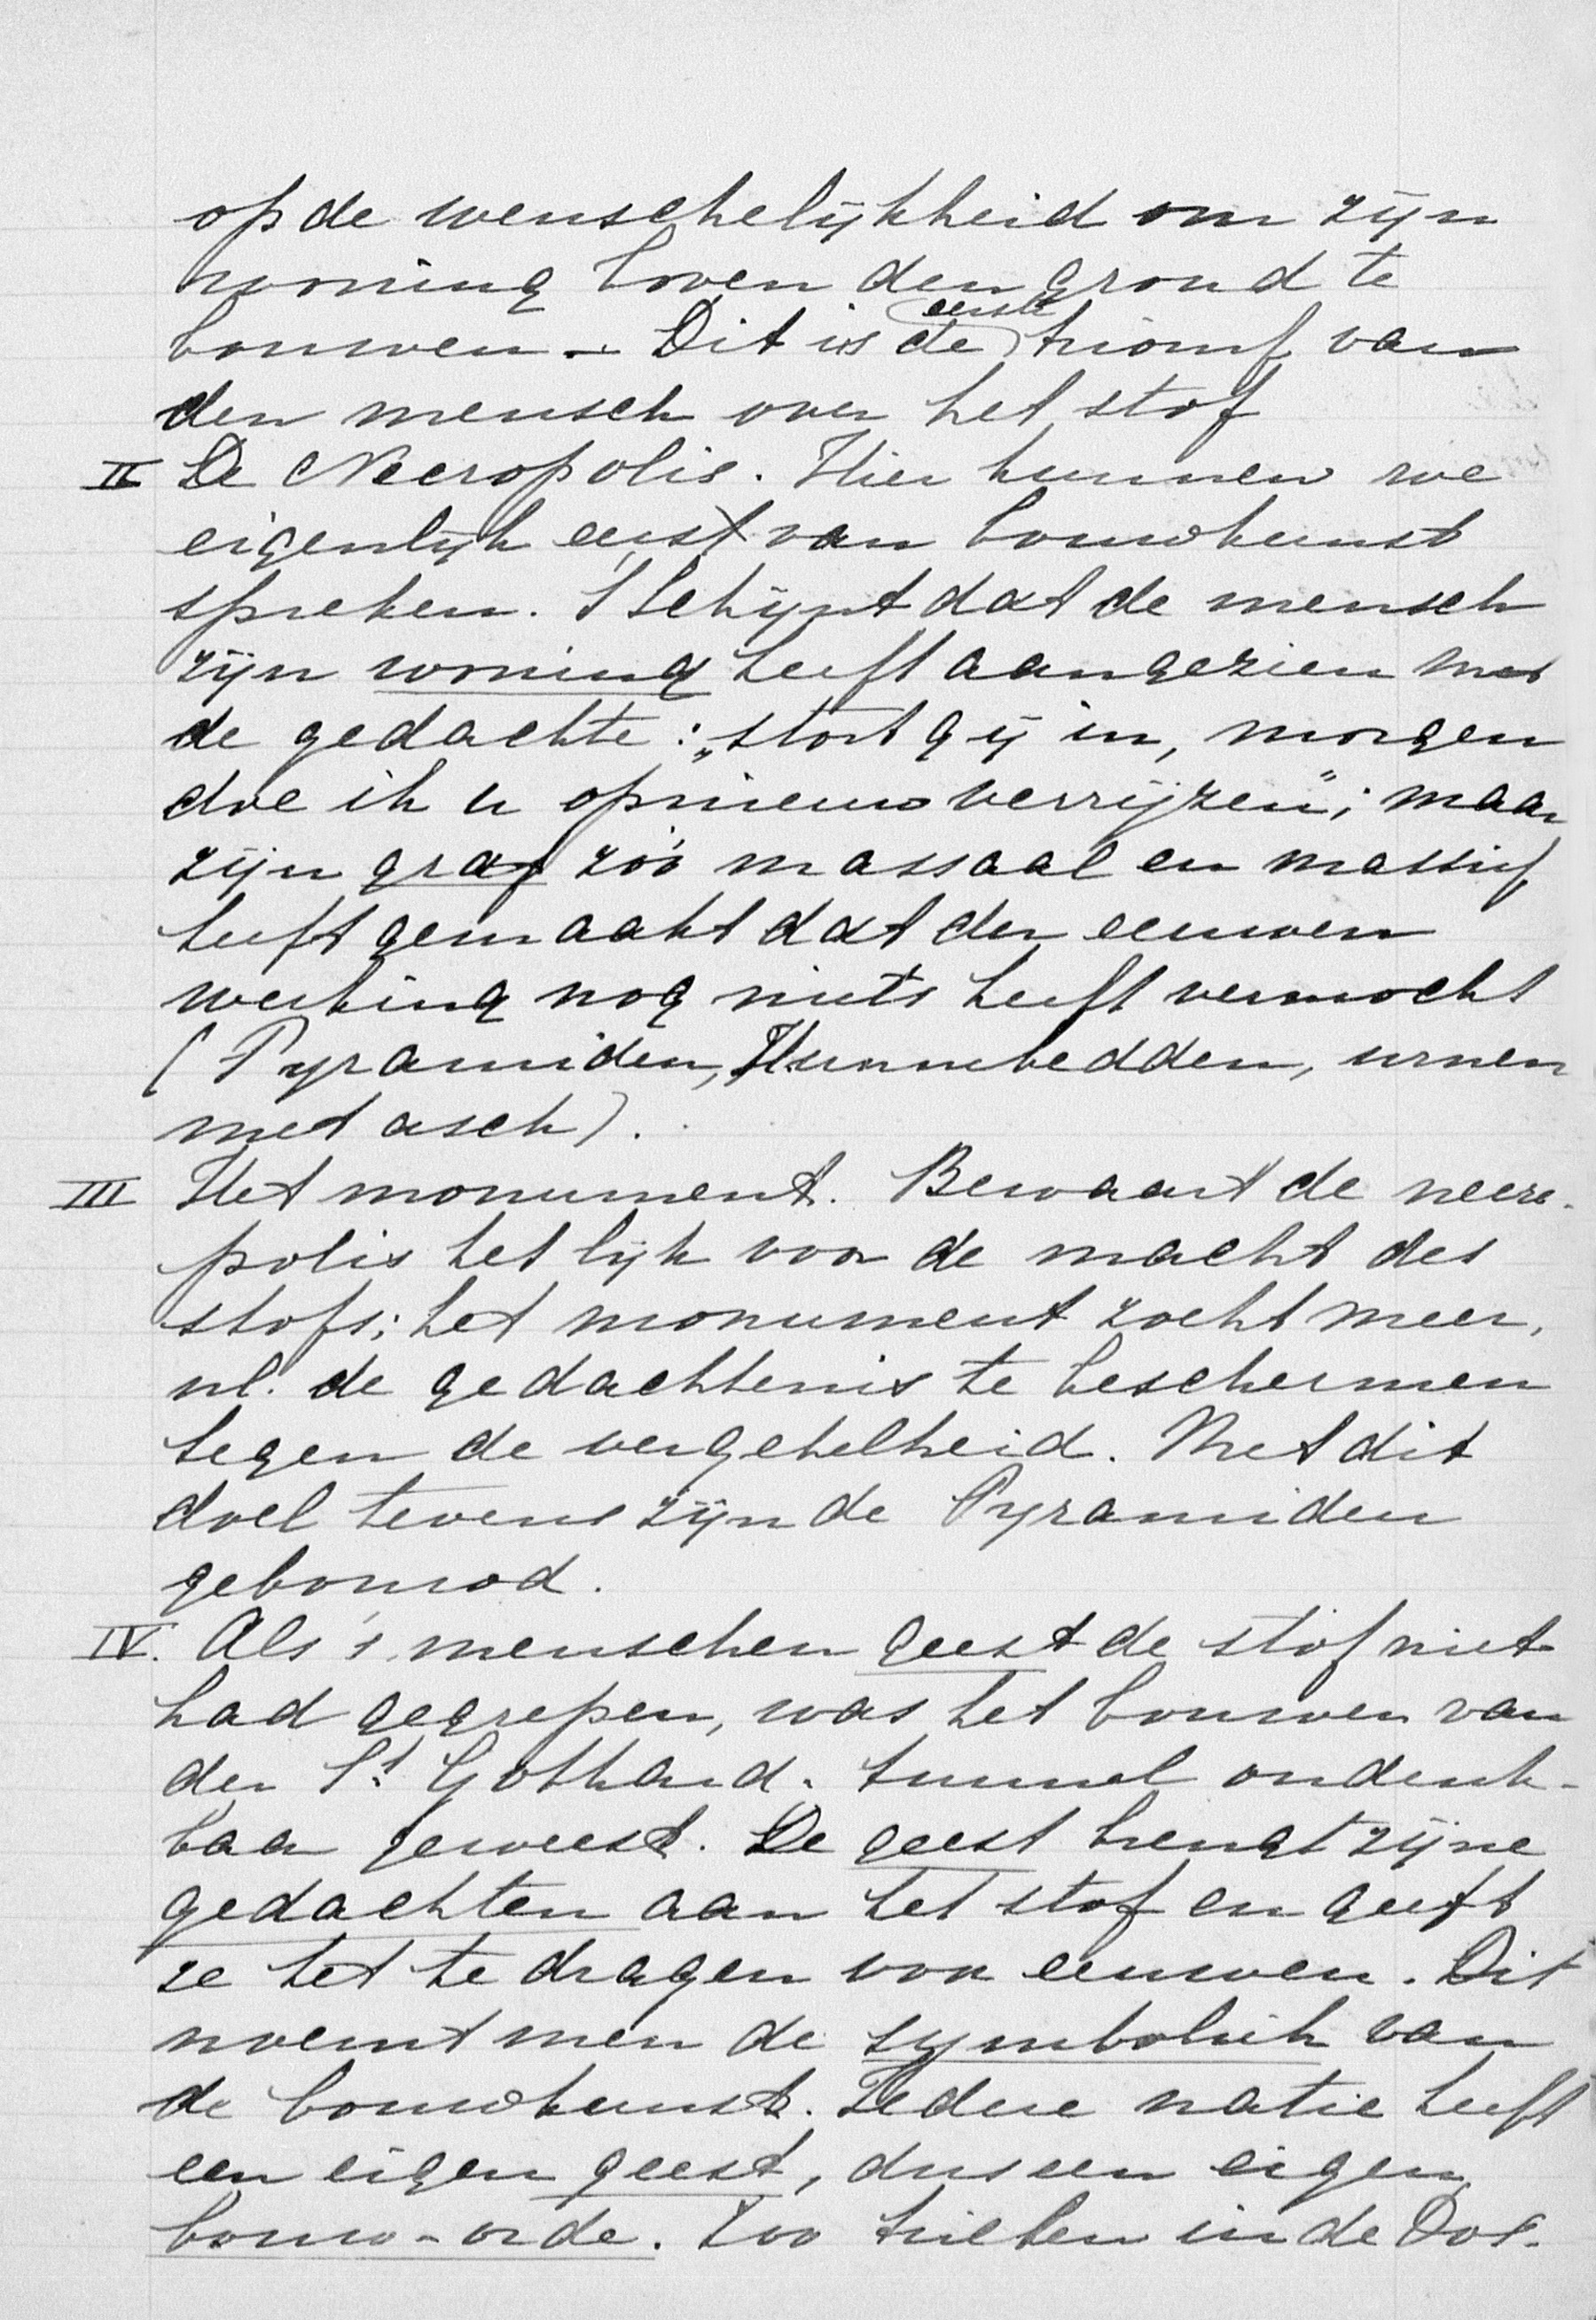 op de wenschelijkheid om zijn
woning boven den grond te
bouwen. – Dit is de eerste triomf van
den mensch over het stof
II De Necropolis. Hier kunnen we
eigenlijk eerst van bouwkunst
spreken. 't Schijnt dat de mensch
zijn woning heeft aangezien met
de gedachte: „stort gij in, morgen
doe ik u opnieuw verrijzen"; maar
zijn graf zóó massaal en massief
heeft gemaakt dat der eeuwen
werking nog niets heeft vermocht
(Pyramiden, Hunnebedden, urnen
met asch).
III Het monument. Bewaart de necro-
polis het lijk voor de macht des
stofs; het monument zocht meer,
nl. de gedachtenis te beschermen
tegen de vergetelheid. Met dit
doel tevens zijn de Pyramiden
gebouwd.
IV. Als 's menschen geest de stof niet
had gegrepen, was het bouwen van
den St. Gothard-tunnel ondenk-
baar geweest. De geest brengt zijne
gedachten aan het stof en geeft
ze het te dragen voor eeuwen. Dit
noemt men de symboliek van
de bouwkunst. Iedere natie heeft
een eigen geest, dus een eigen
bouw-orde. Zoo hielden in de Oos-